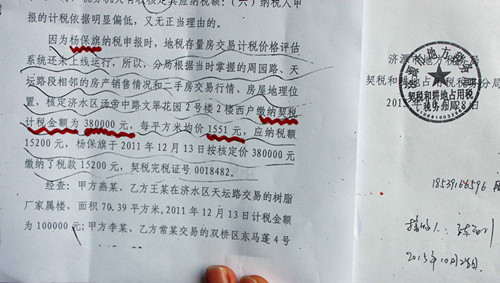 报的计税依据明显偏低,又无正当理由的。
因为杨保旗纳税申报时,地税存量房交易计税价格评估
系统还未上线运行,所以,分局根据当时掌握的周园路、天
坛路段相邻的房产销售情况和二手房交易行情、房屋地理位
置,核定济水区汤帝中路文翠花园2号楼2楼西户缴纳契税
计税金额为380000元,每平方米均价1551元,应纳税额
15200元,杨保旗于2011年12月13日按核定价380000元
缴纳了税款15200元,契税完税证号0018482。
经查:甲方燕某、乙方王某在济水区天坛路交易的树脂
厂家属楼,面积70.39平方米,2011年12月13日计税金额
为100000元;甲方李某、乙方常某交易的双桥区东马蓬4号
济源市地方税务局
契税和耕地占用税
契税和耕地占用税
18539166596
2015年10月28日